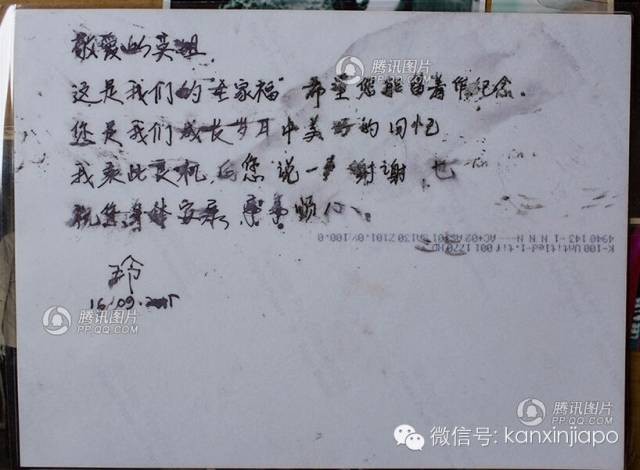 敬爱的英姐
这是我们的"全家福" 希望您能留着作纪念。
您是我们成长岁月中美好的回忆
我乘此良机,向您说一声 谢谢,也
祝您身体安康,事事顺心。
玲
16.09.
K-100Untitled-1.tif 001 1170HD
4940 143-1 N N N
腾讯图片
PP.QQ.COM
腾讯图片
PP.QQ.COM
腾讯图片
PP.QQ.COM
微信号: kanxinjiapo